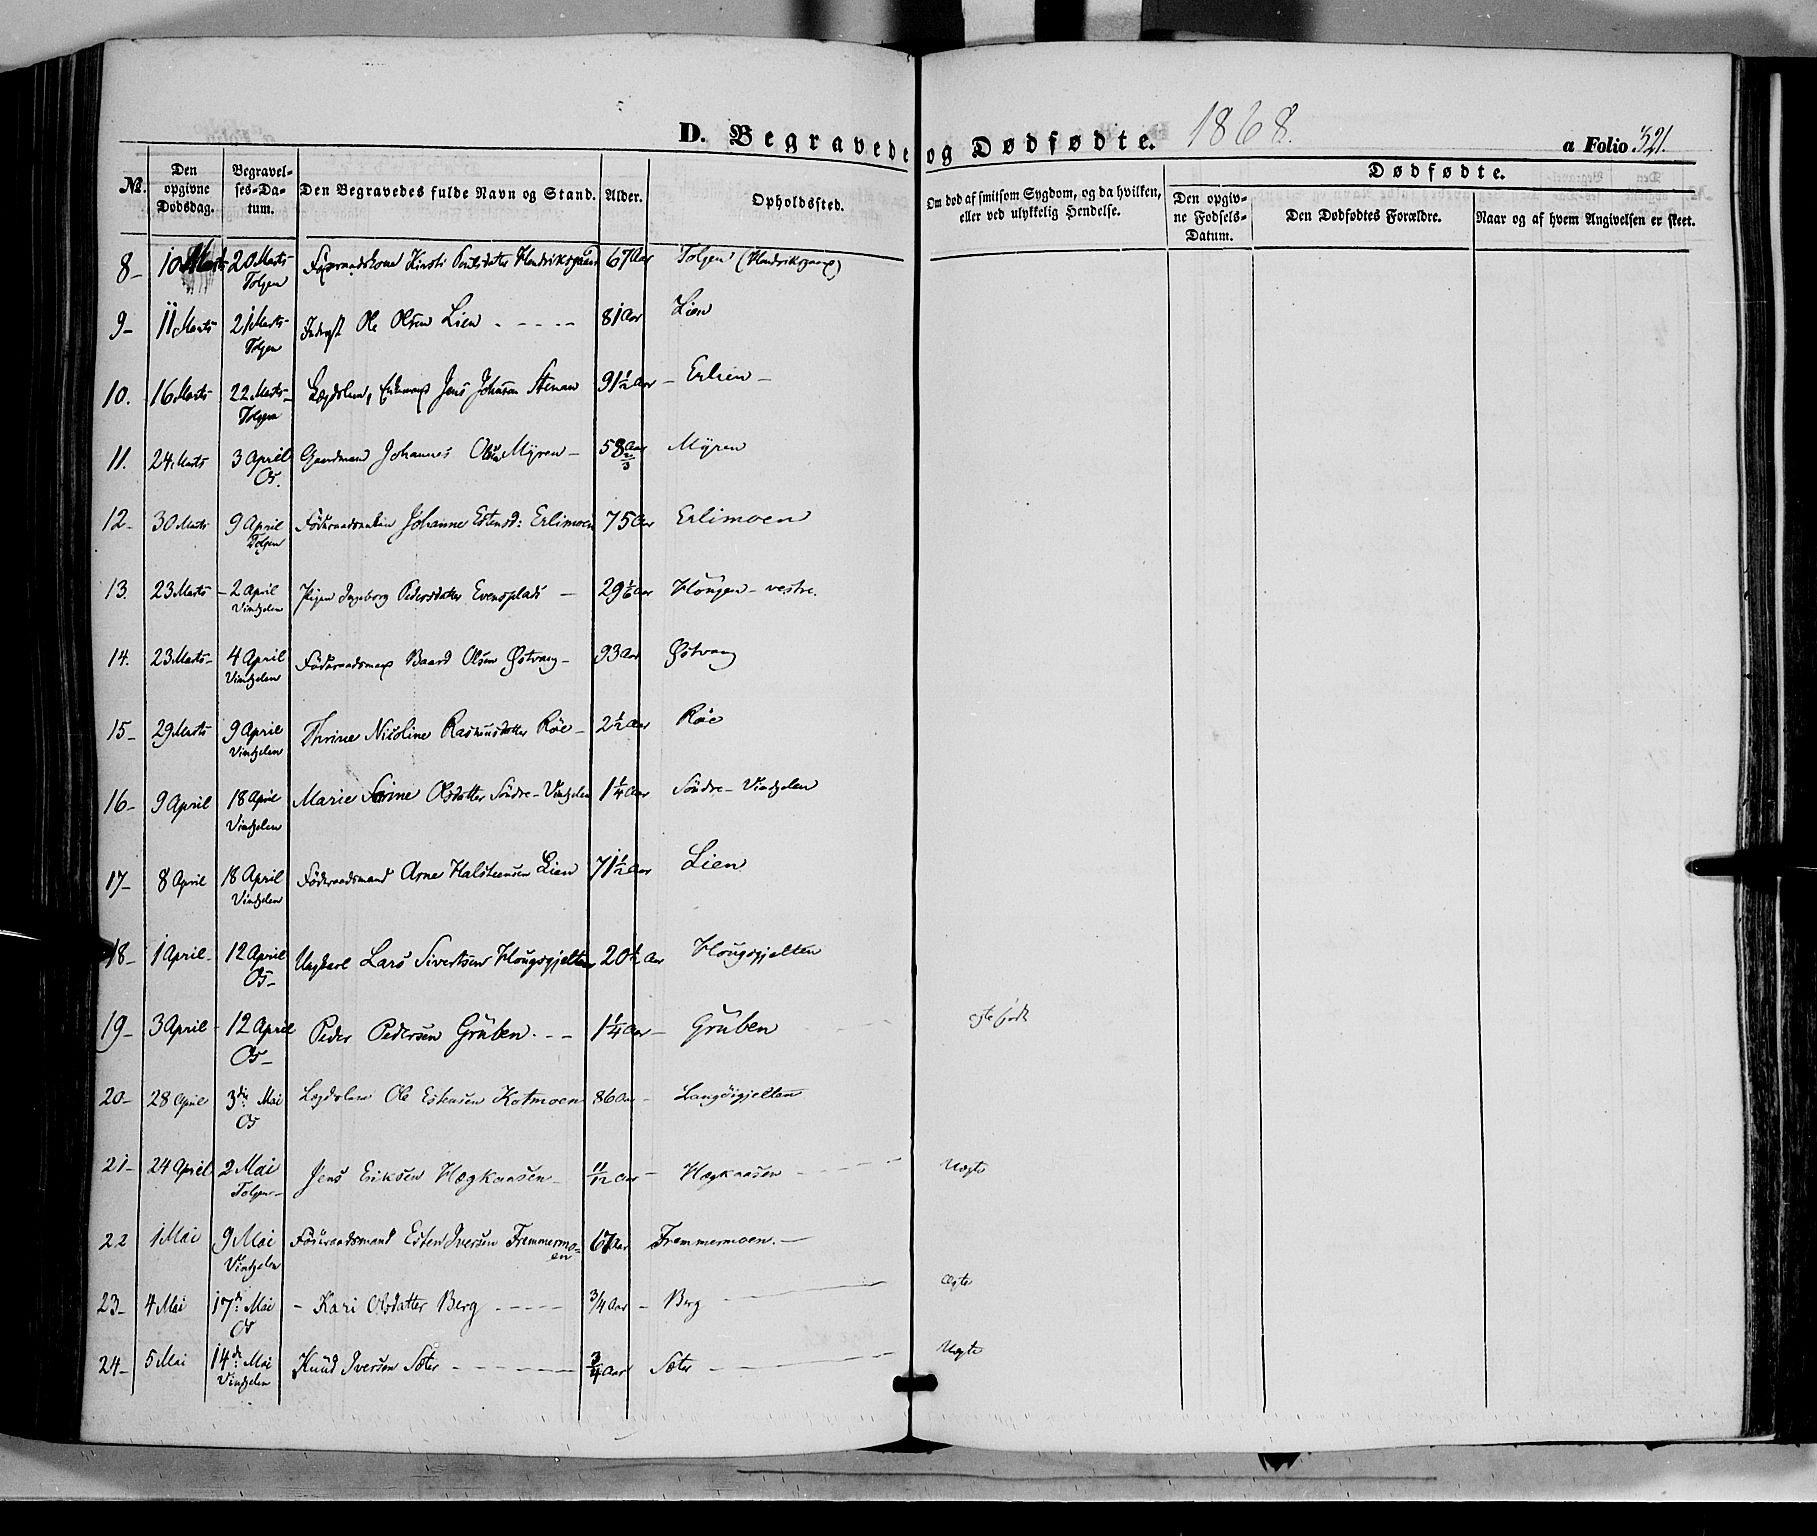 D. Begravede og Dødfødte. 1868. a Folio 321.
No. Den opgivne Dødsdag. Begravelses-Datum. Den Begravedes fulde Navn og Stand. Alder. Opholdssted. Om død af smitsom Sygdom, og da hvilken, eller ved ulykkelig Hendelse. Dødfødte.
Den opgivne Fødsels-Datum. Den Dødfødtes Forældre. Naar og af hvem Angivelsen er skeet.
8- 10 Marts 20 Marts Tolgen Kirsti 67 Aar Tolgen (Hendriksgaard)
9- 11 Marts 21 Marts- Tolgen Inderst Ole Olsen Lien - - - - - 81 Aar Lien
10. 16 Marts 22 Marts- Tolgen Lægdslem, Enkemand Jens Johnsen Stenan 91 1/2 Aar - Erlien -
11. 24 Marts 3 April Os. Gaardmand Johannes Olsen Myren - 58 2/3 Aar Myren
12- 30 Marts 9 April Tolgen Föderaadsenken Johanne Estensd: Erlimoen 75 Aar Erlimoen
13. 23 Marts - 2 April Vingelen Pigen Ingeborg Pedersdatter Evensplads - 29 1/6 Aar Hougen - vestre.
14. 23 Marts- 4 April Vingelen Föderaadsmand Baard Olsen Østvang - 93 Aar Østvang
15- 29 Marts 9 April Vingelen Thrine Nicoline Rasmusdatter Röe - 2 1/2 Aar Röe
16- 9 April 18 April Vingelen Marie Olsdatter Söndre-Vingelen 1 1/4 Aar Söndre-Vingelen
17- 8 April 18 April Vingelen Föderaadsmand Arne Halsteensen Lien 71 1/2 Aar Lien
18- 1 April- 12 April Os- Ungkarl Lars Sivertsen Hougsgjelten 20 1/2 Aar Hougsgjelten
19- 3 April - 12 April Os- Peder Pedersen Gruben. - - 1 1/4 Aar - Gruben ægtefödt
20- 28 April 3die Mai Os Lægdslem Ole Estensen Kotmoen 86 Aar - Langöigjelten
21- 24 April 2 Mai Tolgen- Jens Eriksen Hægkaasen - 11/12 Aar - Hægkaasen - - - - Uægte
22 1 Mai 9 Mai Vingelen Föderaadsmand Esten Iversen Fremmermoen 67 Aar Fremmermoen. -
23- 4 Mai 17de Mai Os - Kari Olsdatter Berg - - - - 3/4 Aar - Berg - - - Ægte
24- 5 Mai 14de Mai Vingelen Knud Iversen Sæter - - - - - 3/4 Aar Sæter - - - Uægte